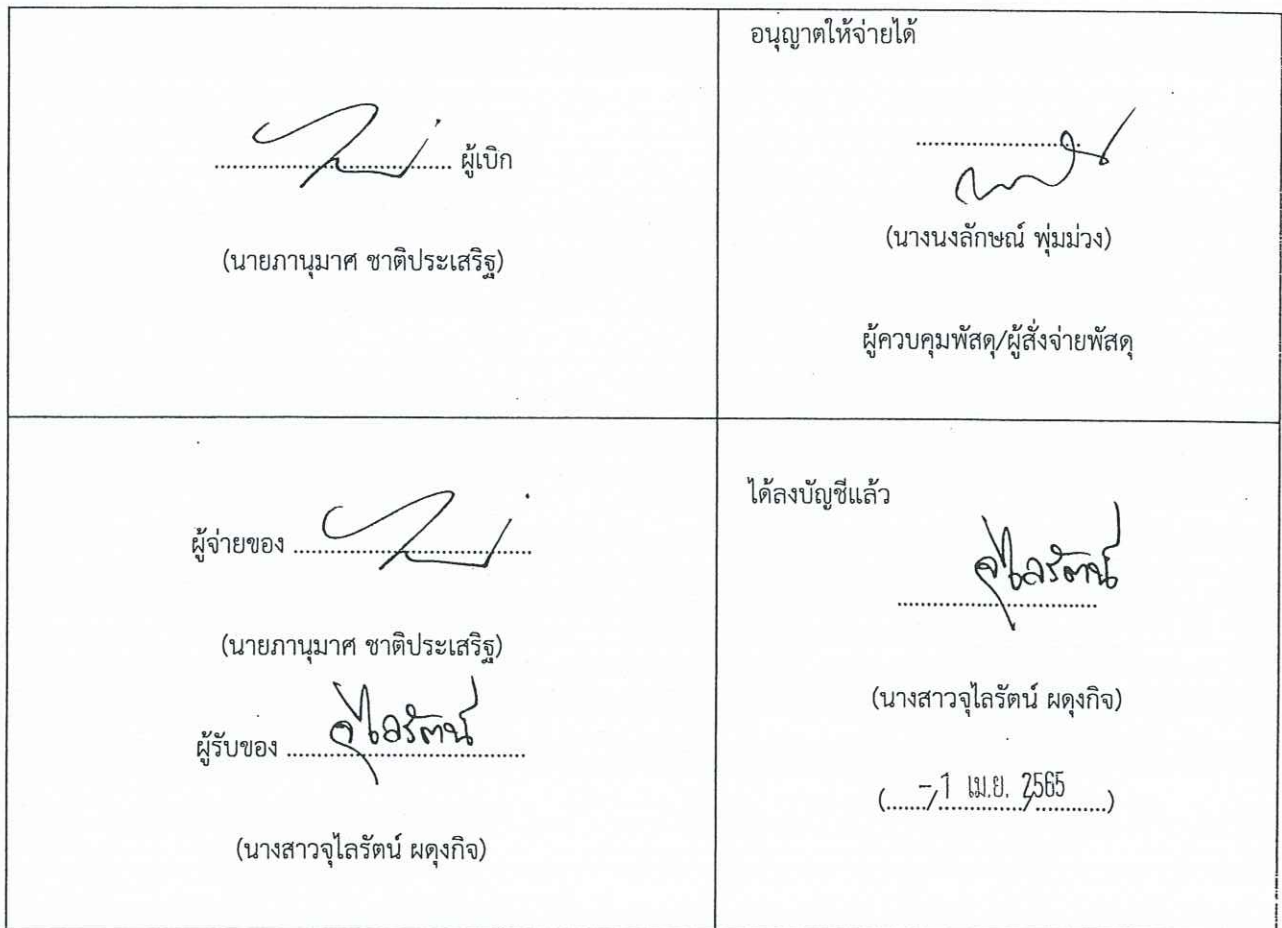 ผู้เบิก
(นายภานุมาศ ชาติประเสริฐ)
อนุญาตให้จ่ายได้
(นางนงลักษณ์ พุ่มม่วง)
ผู้ควบคุมพัสดุ/ผู้สั่งจ่ายพัสดุ
ผู้จ่ายของ
(นายภานุมาศ ชาติประเสริฐ)
ผู้รับของ จุไลรัตน์
(นางสาวจุไลรัตน์ ผดุงกิจ)
ได้ลงบัญชีแล้ว
จุไลรัตน์
(นางสาวจุไลรัตน์ ผดุงกิจ)
(....../............/...........)
-1 เม.ย. 2565